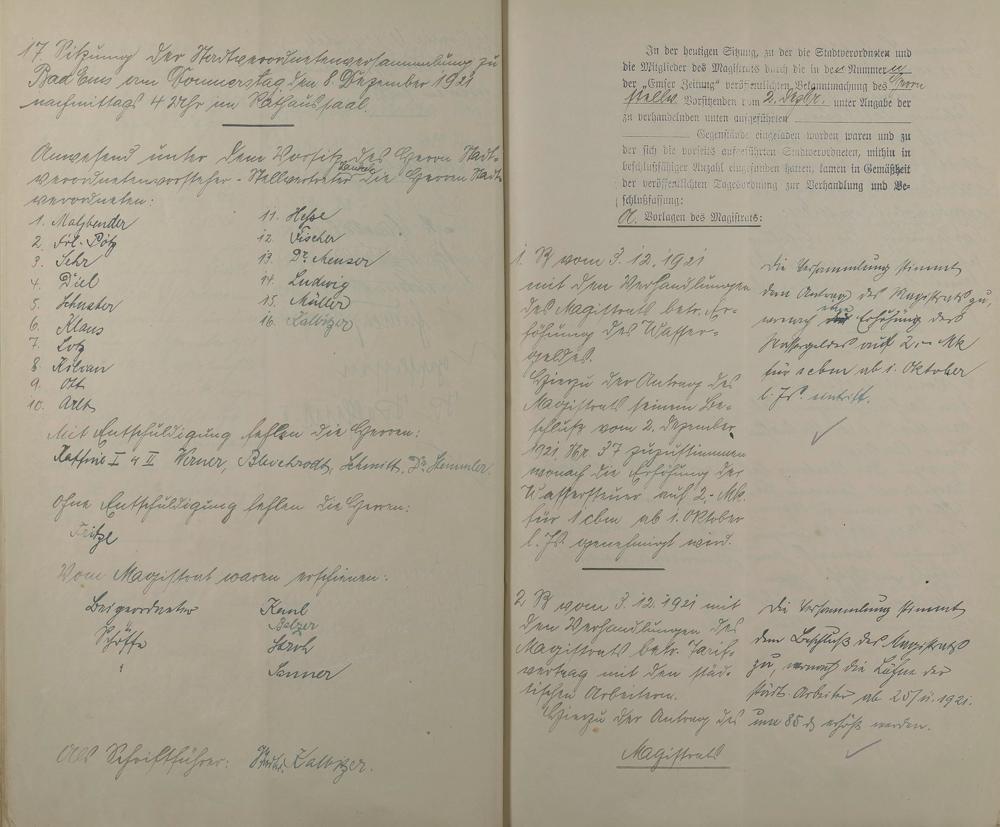 17. Sitzung der Stadtverordnetenversammlung zu
Bad Ems am Donnerstag, den 8. Dezember 1921
nachmittags 4 Uhr im Rathaussaal.
Anwesend unter dem Vorsitz des Herrn Stadt-
verordnetenvorsteher-Stellvertreter die Herren Stadt-
verordneten:
1. Malzbender
2. Frl. Pötz
3. Sehr
4. Diel
5. Schuster
6. Klaus
7. Lotz
8. Kilian
9. Ott
10. Arlt
11. Hesse
12. Fischer
13. Dr. Meuser
14. Ludwig
15. Müller
16. Kalbitzer
Mit Entschuldigung fehlen die Herren:
I u II Werner, Schmitt, Dr. Stemmler
Ohne Entschuldigung fehlen die Herren:
Fritze
Vom Magistrat waren erschienen:
Beigeordneter
Schöffe
"
Kaul
Balzer
Stroh
Sanner
Als Schriftführer: Kalbitzer.
In der heutigen Sitzung, zu der die Stadtverordneten und
die Mitglieder des Magistrats durch die in der Nummer
der „Emser Zeitung“ veröffentlichten Bekanntmachung des Herrn
stellv. Vorsitzenden vom 2. Dezbr. unter Angabe der
zu verhandelnden unten aufgeführten
Gegenstände eingeladen worden waren und zu
der sich die vorseits aufgeführten Stadtverordneten, mithin in
beschlußfähiger Anzahl eingefunden hatten, kamen in Gemäßheit
der veröffentlichten Tagesordnung zur Verhandlung und Be-
schlußfassung:
A. Vorlagen des Magistrats:
1. B vom 3.12.1921
mit den Verhandlungen
des Magistrats betr. Er-
höhung des Wasser-
geldes.
Hierzu der Antrag des
Magistrats seinem Be-
schluß vom 2. Dezember
1921 Nr. 37 zuzustimmen
wonach die Erhöhung der
Wassersteuer auf 2,- Mk.
für 1 cbm ab 1. Oktober
l. Js. genehmigt wird.
Die Versammlung stimmt
dem Antrag des Magistrats zu,
wonach Erhöhung des
Wassergeldes auf 2.- Mk
für 1 cbm ab 1. Oktober
l. Js. eintritt.
2. B vom 3.12.1921 mit
den Verhandlungen des
Magistrats betr. Tarif-
vertrag mit den städ-
tischen Arbeitern.
Hierzu der Antrag des
Magistrats
Die Versammlung stimmt
dem Beschluß des Magistrats
zu, wonach die Löhne der
städt. Arbeiter ab 25/11.1921.
um 85 erhöht werden.